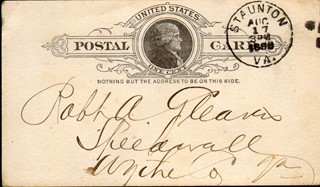 UNITED STATES
POSTAL CARD
ONE CENT
NOTHING BUT THE ADDRESS TO BE ON THIS SIDE.
STAUNTON
AUG
17
3PM
VA.
Robt A. Gleaves
Speedwell
Wythe Co Va